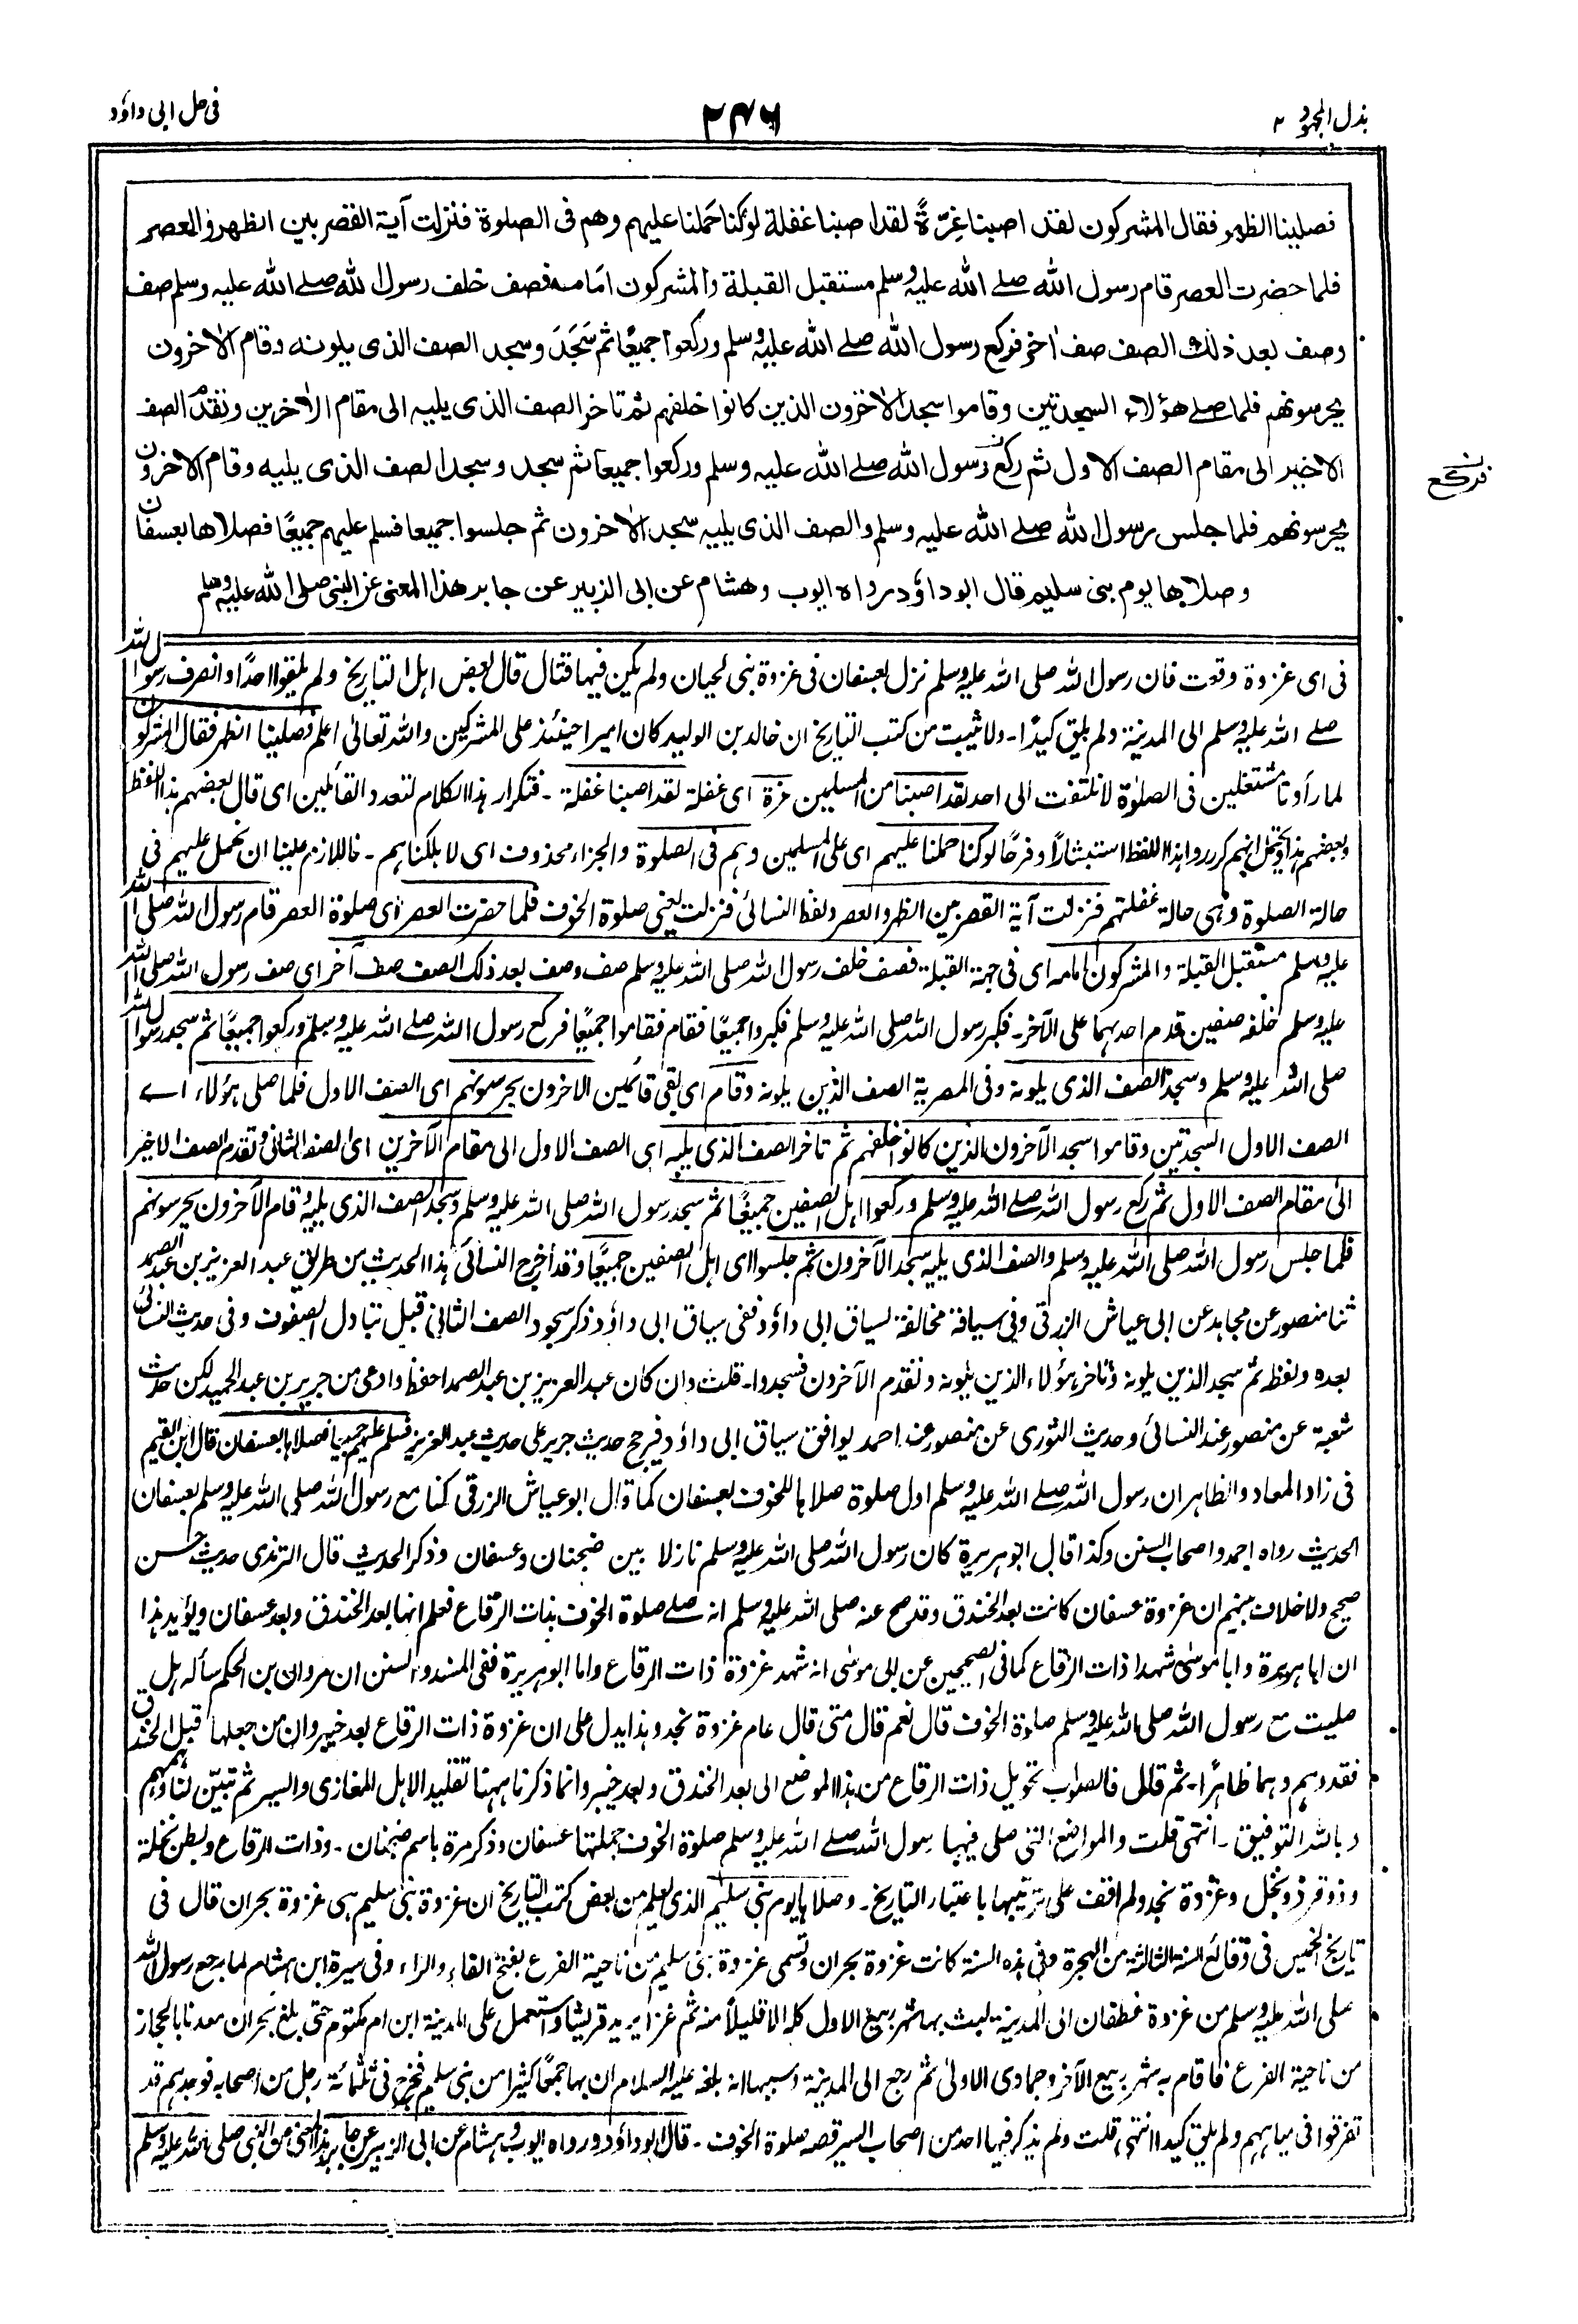 بذل المجهود ٢
٢٤٦
فی حل ابی داؤد
فصلینا الظهر فقال المشرکون لقد اصبنا غِرّةً لقد اصبنا غفلة لوکنا حَملنا علیهم وهم فی الصلوة فنزلت آیة القصر بین الظهر والعصر
فلما حضرت العصر قام رسول الله صلے الله علیه وسلم مستقبل القبلة والمشرکون امامه فصف خلف رسول الله صلے الله علیه وسلم صف
وصف بعد ذلک الصف صف اٰخر فرکع رسول الله صلے الله علیه وسلم ورکعوا جمیعًا ثم سَجَدَ وسجد الصف الذی یلونه وقام الاٰخرون
یحرسونهم فلما صلے هؤلاء السجدتین وقاموا سجد الاٰخرون الذین کانوا خلفهم ثم تاخر الصف الذی یلیه الی مقام الاٰخرین وتقدم الصف
الاخیر الی مقام الصف الاول ثم رکع رسول الله صلے الله علیه وسلم ورکعوا جمیعا ثم سجد وسجد الصف الذی یلیه وقام الاخرون
فرکع
یحرسونهم فلما جلس رسول الله صلے الله علیه وسلم والصف الذی یلیه سجد الاٰخرون ثم جلسوا جمیعا فسلم علیهم جمیعًا فصلاها بعسفان
وصلاها یوم بنی سلیم قال ابو داؤد رواه ایوب وهشام عن ابی الزبیر عن جابر هذا المعنی عن النبی صلی الله علیه وسلم
فی ای غزوة وقعت فان رسول الله صلی الله علیه وسلم نزل بعسفان فی غزوة بنی لحیان ولم یکن فیها قتال قال بعض اہل التاریخ ولم یلقوا احدًا وانصرف رسول الله
صلے الله علیه وسلم الی المدینة ولم یلق کیدًا۔ ولا ثبت من کتب التاریخ ان خالد بن الولید کان امیرا حینئذ علی المشرکین والله تعالیٰ اعلم فصلینا الظهر فقال المشرکون
لما رأونا مشتغلین فی الصلوٰة لا نلتفت الی احد لقد اصبنا من المسلمین غرة ای غفلة لقد اصبنا غفلة۔ فتکرار ہذا الکلام لتعدد القائلین ای قال بعضهم ہذا اللفظ
وبعضهم ہذا ویحتمل انهم کرروا ہذا اللفظ استبشارًا وفرحًا لوکنا حملنا علیهم ای علی المسلمین وہم فی الصلوة والجزاء محذوف ای لاہلکناہم۔ فاللازم علینا ان نحمل علیهم فی
حالة الصلوة وہی حالة غفلتهم فنزلت آیة القصر بین الظهر والعصر ولفظ النسائی فنزلت یعنی صلوة الخوف فلما حضرت العصر ای صلوة العصر قام رسول الله صلی الله
علیه وسلم مستقبل القبلة والمشرکون امامه ای فی جهة القبلة فصف خلف رسول الله صلی الله علیه وسلم صف وصف بعد ذلک الصف صف آخر ای صف رسول الله صلی الله
علیه وسلم خلفه صفین قدم احدہما علی الآخر۔ فکبر رسول الله صلی الله علیه وسلم فکبروا جمیعًا فقام فقاموا جمیعًا فرکع رسول الله صلے الله علیه وسلم ورکعوا جمیعًا ثم سجد رسول الله
صلی الله علیه وسلم وسجد الصف الذی یلونه وفی المصریة الصف الذین یلونه وقام ای بقی قائمین الآخرون یحرسونهم ای الصف الاول فلما صلی ہؤلاء اے
الصف الاول السجدتین وقاموا سجد الآخرون الذین کانوا خلفهم ثم تاخر الصف الذی یلیه ای الصف الاول الی مقام الآخرین ای الصف الثانی وتقدم الصف الاخیر
الی مقام الصف الاول ثم رکع رسول الله صلے الله علیه وسلم ورکعوا اہل الصفین جمیعًا ثم سجد رسول الله صلی الله علیه وسلم وسجد الصف الذی یلیه وقام الآخرون یحرسونهم
فلما جلس رسول الله صلی الله علیه وسلم والصف الذی یلیه سجد الآخرون ثم جلسوا ای اہل الصفین جمیعًا وقد أخرج النسائی ہذا الحدیث من طریق عبد العزیز بن عبد الصمد
ثنا منصور عن مجاہد عن ابی عیاش الزرقی وفی سیاقه مخالفة لسیاق ابی داؤد ففی سیاق ابی داؤد ذکر سجود الصف الثانی قبل تبادل الصفوف وفی حدیث النسائی
بعده ولفظه ثم سجد الذین یلونه وتاخر ہؤلاء الذین یلونه وتقدم الآخرون فسجدوا۔ قلت وان کان عبد العزیز بن عبد الصمد احفظ واوعی من جریر بن عبد الحمید لکن حدیث
شعبة عن منصور عند النسائی وحدیث الثوری عن منصور عند احمد یوافق سیاق ابی داؤد فیرجح حدیث جریر علی حدیث عبد العزیز فسلم علیهم جمیعا فصلاہا بعسفان قال ابن القیم
فی زاد المعاد والظاہر ان رسول الله صلے الله علیه وسلم اول صلوة صلاہا للخوف بعسفان کما قال ابو عیاش الزرقی کنا مع رسول الله صلی الله علیه وسلم بعسفان
الحدیث رواه احمد واصحاب السنن وکذا قال ابو ہریرة کان رسول الله صلی الله علیه وسلم نازلا بین ضجنان وعسفان وذکر الحدیث قال الترمذی حدیث حسن
صحیح ولا خلاف بینهم ان غزوة عسفان کانت بعد الخندق وقد صح عنه صلی الله علیه وسلم انه صلے صلوة الخوف بذات الرقاع فعلم انها بعد الخندق وبعد عسفان ویؤید ہذا
ان ابا ہریرة وابا موسیٰ شهدا ذات الرقاع کما فی الصحیحین عن ابی موسٰی انه شهد غزوة ذات الرقاع واما ابو ہریرة ففی المسند والسنن ان مروان بن الحکم سأله ہل
صلیت مع رسول الله صلی الله علیه وسلم صلوة الخوف قال نعم قال متی قال عام غزوة نجد وہذا یدل علی ان غزوة ذات الرقاع بعد خیبر وان من جعلها قبل الخندق
فقد وہم وہما ظاہرًا۔ ثم قال فالصواب تحویل ذات الرقاع من ہذا الموضع الی بعد الخندق وبعد خیبر وانما ذکرنا ہہنا تقلیدا لاہل المغازی والسیر ثم تبیّن لنا وہمهم
وبالله التوفیق۔ انتہی قلت والمواضع التی صلی فیها رسول الله صلے الله علیه وسلم صلوة الخوف جملتها عسفان وذکر مرة باسم ضجنان۔ وذات الرقاع وبطن نخلة
وذو قرد ونخل وغزوة نجد ولم اقف علی ترتیبها باعتبار التاریخ۔ وصلاہا یوم بنی سلیم الذی یعلم من بعض کتب التاریخ ان غزوة بنی سلیم ہی غزوة بحران قال فی
تاریخ الخمیس فی وقائع السنة الثالثة من الہجرة وفی ہذه السنة کانت غزوة بحران وتسمی غزوة بنی سلیم من ناحیة الفرع بفتح الفاء والراء وفی سیرة ابن ہشام لما رجع رسول الله
صلی الله علیه وسلم من غزوة غطفان الی المدینة لبث بها شهر ربیع الاول کله الا قلیلاً منه ثم غزا یرید قریشا واستعمل علی المدینة ابن ام مکتوم حتی بلغ بحران معدنا بالحجاز
من ناحیة الفرع فاقام به شهر ربیع الآخر وجمادی الاولیٰ ثم رجع الی المدینة وسببها انه بلغه علیه السلام ان بها جمعًا کثیرا من بنی سلیم فخرج فی ثلثمائة رجل من اصحابه فوجدہم قد
تفرقوا فی میاہهم ولم یلق کیدا انتہی قلت ولم یذکر فیها احد من اصحاب السیر قصة صلوة الخوف۔ قال ابو داؤد ورواه ایوب وہشام عن ابی الزبیر عن جابر ہذا المعنی عن النبی صلی الله علیه وسلم